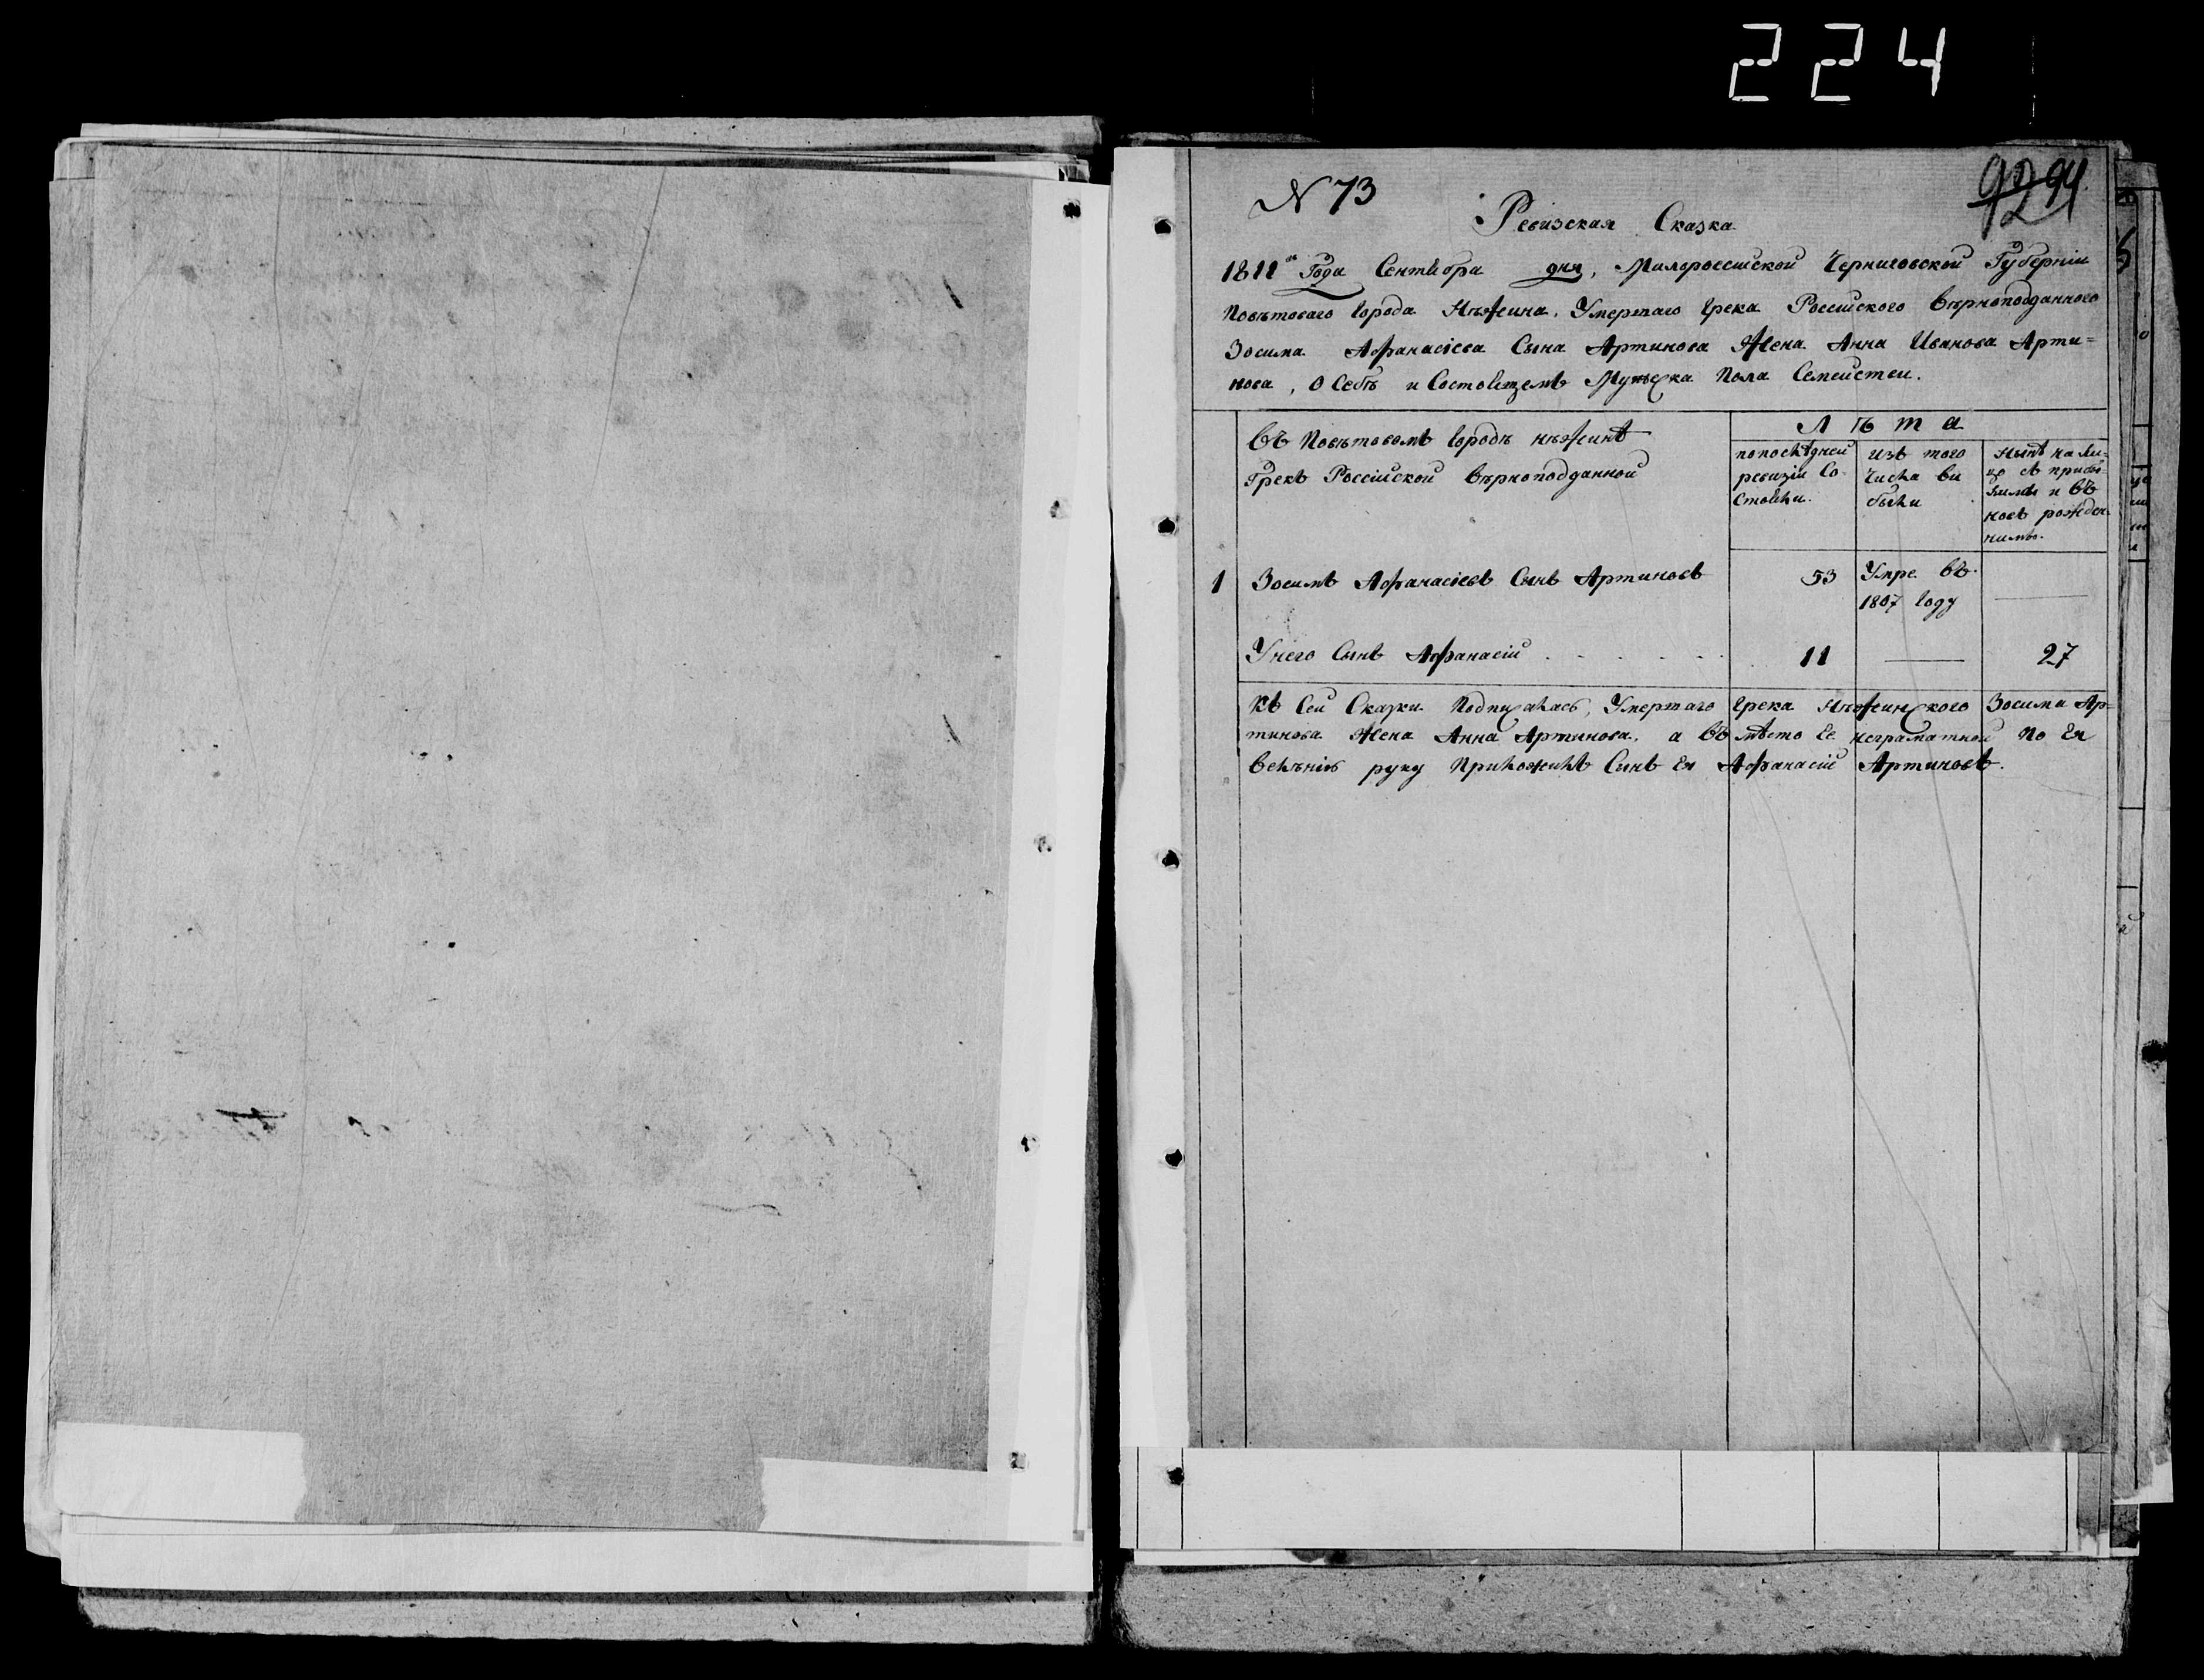 224
N 73
94
Ревизская Сказка
1811го Года Сентября дня, Малороссийской Черниговской Губернии
Повѣтоваго города Нѣжина, Умершаго Грека Российского вѣрноподданного
Зосима Афанасіева Сына Артинова Жена Анна Иванова Арти=
нова, о Себѣ и Состоящемъ Мужеска Пола Семействи.
Въ Повѣтовомъ городѣ нѣжинѣ
Грекъ Россійской вѣрноподданной
Лѣта
по послѣдней
ревизіи Со-
стояли.
изъ того
числа ви
были
Нынѣ на ли-
цо съ прибы-
лими и въ
новъ рожден-
ними.
1 Зосимъ Афанасіевъ Сынъ Артиновъ 53 Умре въ
1807 году
У него Сынъ Афанасій 11 — 27
Къ Сей Сказки Подписалась, Умершаго Грека Нѣжинского Зосима Ар=
тинова Жена Анна Артинова, а въ мѣсто Ее неграматной По Ея
велѣнію руку Приложилъ Синъ Ея Афанасій Артиновъ.